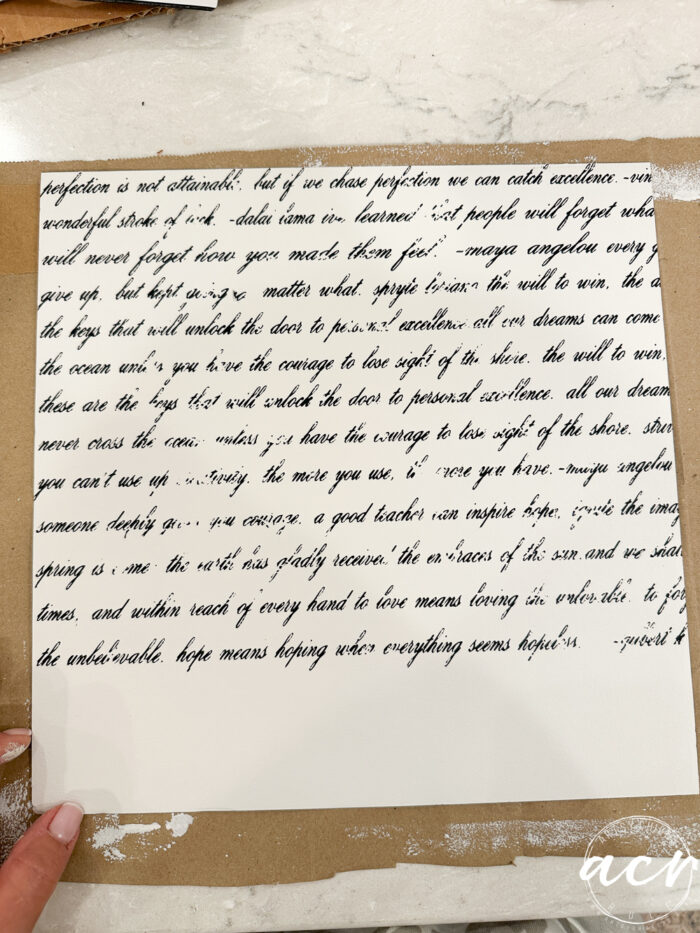 perfection is not attainable, but if we chase perfection we can catch excellence. -vin
wonderful stroke of luck. -dalai lama ive learned that people will forget wha
will never forget how you made them feel. -maya angelou every g
give up, but kept going matter what. the will to win, the d
the keys that will unlock the door to personal excellence all our dreams can come
the ocean unless you have the courage to lose sight of the shore. the will to win,
these are the keys that will unlock the door to personal excellence. all our dream
never cross the ocean unless you have the courage to lose sight of the shore. striv
you can't use up creativity. the more you use, more you have. -maya angelou
someone deeply gives you courage. a good teacher can inspire hope, ignite the imag
spring is come the earth has gladly received the embraces of the sun.and we shall
times, and within reach of every hand to love means loving the unlovable. to for
the unbelievable. hope means hoping when everything seems hopeless.
acr